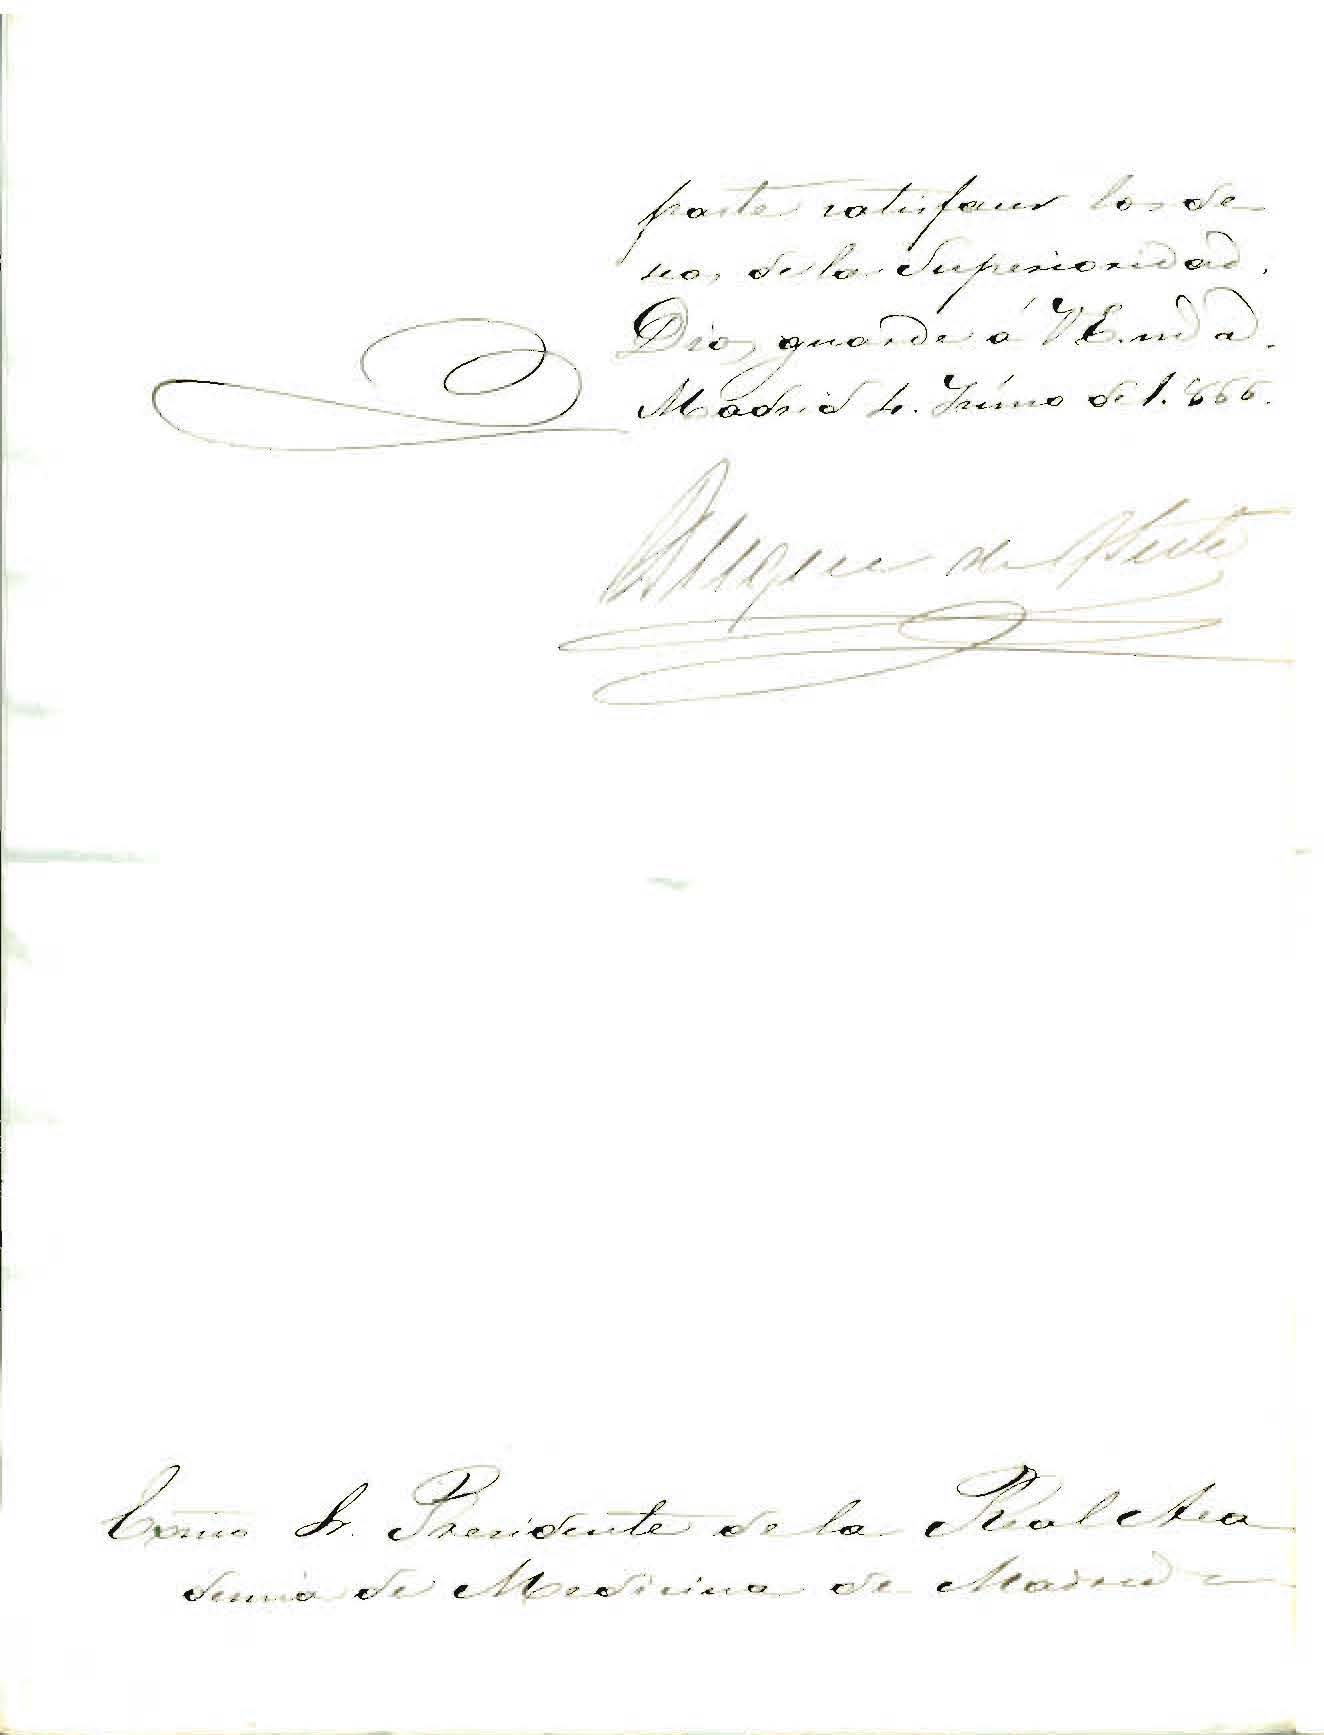 parte satisfacer los de-
seos de la Superioridad.
Dios guarde á V.E. m.s a.s
Madrid 4. Junio de 1.866.
Duque de
Excmo Sr. Presidente de la Real Aca
demia de Medicina de Madrid